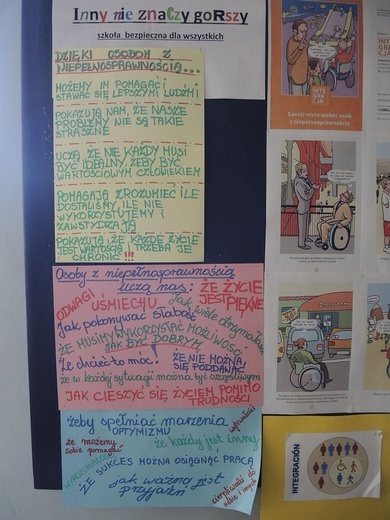 Inny nie znaczy gorszy
szkoła bezpieczna dla wszystkich
DZIĘKI OSOBOM Z
NIEPEŁNOSPRAWNOŚCIĄ...
MOŻEMY IM POMAGAĆ I
STAWAĆ SIĘ LEPSZYMI LUDŹMI
POKAZUJĄ NAM, ŻE NASZE
PROBLEMY NIE SĄ TAKIE
STRASZNE
UCZĄ, ŻE NIE KAŻDY MUSI
BYĆ IDEALNY, ŻEBY BYĆ
WARTOŚCIOWYM CZŁOWIEKIEM
POMAGAJĄ ZROZUMIEĆ ILE
DOSTALIŚMY, ILE NIE
WYKORZYSTUJEMY I
ZAWSTYDZAJĄ
POKAZUJĄ, ŻE KAŻDE ŻYCIE
JEST WARTOŚCIĄ I TRZEBA JE
CHRONIĆ !!!
Osoby z niepełnosprawnością
uczą nas:
ŻE ŻYCIE
JEST PIĘKNE
ODWAGI
UŚMIECHU
Jak wiele otrzymałem
Jak pokonywać słabość
ŻE MUSIMY WYKORZYSTAĆ MOŻLIWOŚCI
JAK BYĆ DOBRYM
Że chcieć to móc!
ŻE NIE MOŻNA
SIĘ PODDAWAĆ
że w każdej sytuacji można być szczęśliwym
JAK CIESZYĆ SIĘ ŻYCIEM POMIMO
TRUDNOŚCI
żeby spełniać marzenia
OPTYMIZMU
że możemy
sobie pomagać
że każdy jest inny
ŻE SUKCES MOŻNA OSIĄGNĄĆ PRACĄ
jak ważna jest
przyjaźń
cierpliwości do
siebie i innych
INTE
GRA
CJA
Savoir-vivre wobec osób
z niepełnosprawnością
INTEGRACIÓN